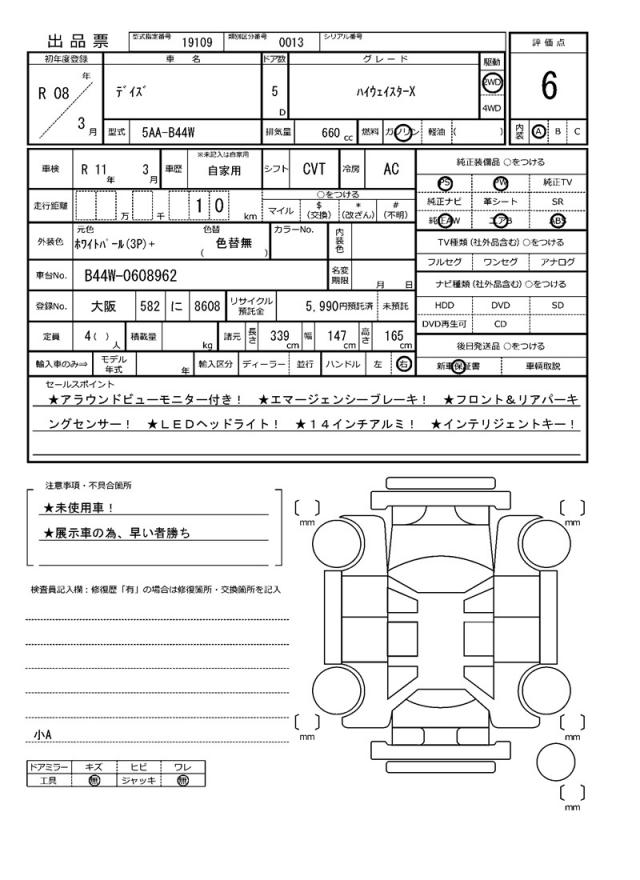 出品票
型式指定番号 19109 類別区分番号 0013 シリアル番号
評価点
6
内装 A B C
初年度登録 車名 ドア数 グレード 駆動
R 08 年 3 月
デイズ 5 D ハイウェイスターX 2WD 4WD
型式 5AA-B44W 排気量 660 cc 燃料 ガソリン 軽油 ( )
車検 R 11 年 3 月 車歴 ※未記入は自家用 自家用 シフト CVT 冷房 AC
走行距離 万 千 1 0 km
○をつける
マイル $(交換) *(改ざん) #(不明)
外装色 元色 ホワイトパール(3P)+ 色替 ( 色替無 ) カラーNo. 内装色
車台No. B44W-0608962 名変期限 月 日
登録No. 大阪 582 に 8608 リサイクル預託金 5,990円預託済 未預託
定員 4( )人 積載量 kg 諸元 長さ 339cm 幅 147cm 高さ 165cm
輸入車のみ⇒ モデル年式 年 輸入区分 ディーラー 並行 ハンドル 左 右
純正装備品 ○をつける
PS PW 純正TV
純正ナビ 革シート SR
純正AW エアB ABS
TV種類(社外品含む)○をつける
フルセグ ワンセグ アナログ
ナビ種類(社外品含む)○をつける
HDD DVD SD
DVD再生可 CD
後日発送品 ○をつける
新車保証書 車輌取説
セールスポイント
★アラウンドビューモニター付き! ★エマージェンシーブレーキ! ★フロント&リアパーキ
ングセンサー! ★LEDヘッドライト! ★14インチアルミ! ★インテリジェントキー!
注意事項・不具合箇所
★未使用車!
★展示車の為、早い者勝ち
検査員記入欄:修復歴「有」の場合は修復箇所・交換箇所を記入
小A
ドアミラー キズ ヒビ ワレ
工具 無 ジャッキ 無
[ ] mm
[ ] mm
[ ] mm
[ ] mm
[ ] mm